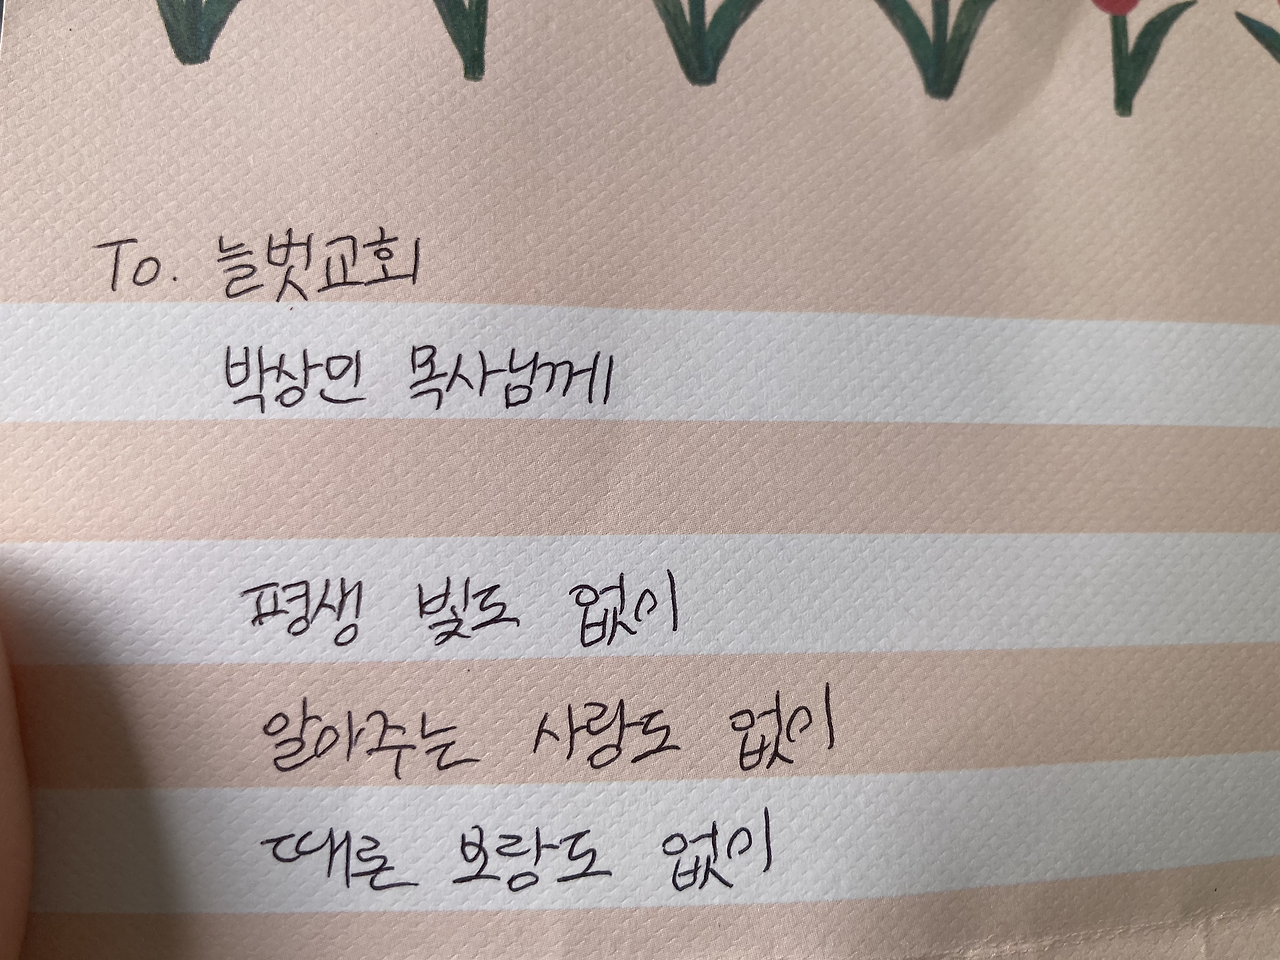 To. 늘벗교회
박상인 목사님께
평생 빛도 없이
알아주는 사랑도 없이
때론 보람도 없이